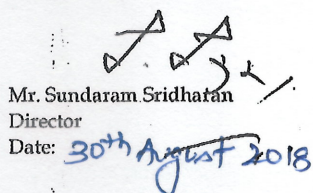 Mr. Sundaram Sridharan
Director
Date: 30th August 2018